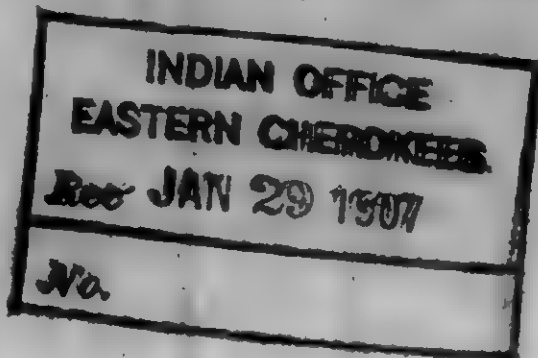 INDIAN OFFICE
EASTERN CHEROKEES
Rec JAN 29 1907
No.